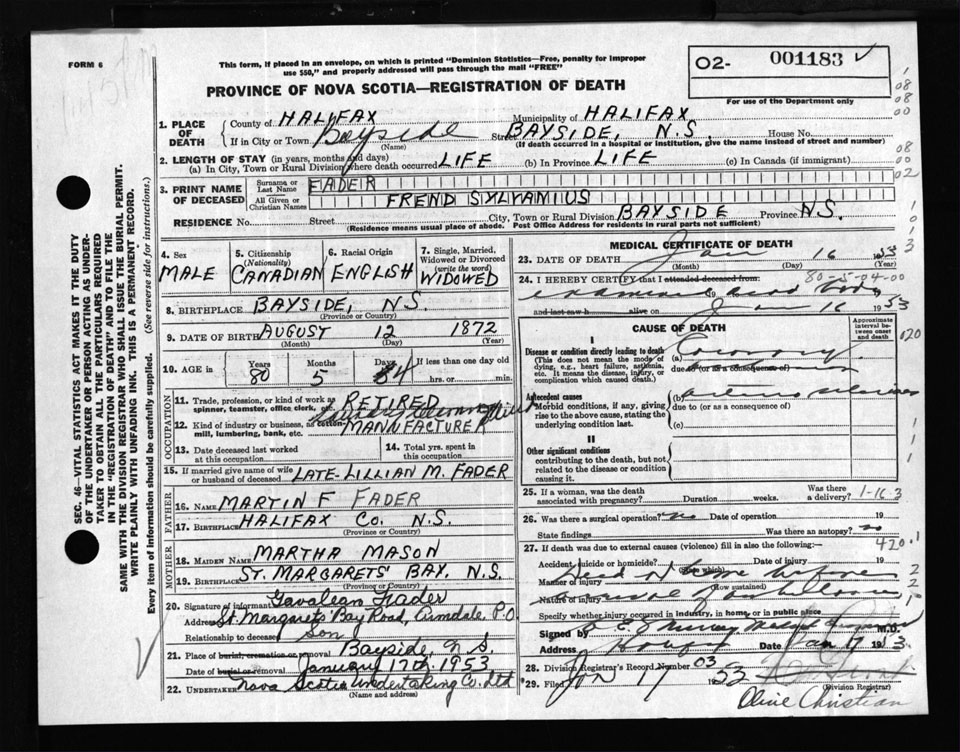 FORM 6
This form, if placed in an envelope, on which is printed "Dominion Statistics—Free, penalty for improper
use $50," and properly addressed will pass through the mail "FREE"
O2- 001183 ✓
For use of the Department only
PROVINCE OF NOVA SCOTIA—REGISTRATION OF DEATH
1. PLACE OF DEATH
County of HALIFAX Municipality of HALIFAX
If in City or Town Bayside Street BAYSIDE, N.S. House No.
(Name) (If death occurred in a hospital or institution, give the name instead of street and number)
2. LENGTH OF STAY (in years, months and days)
(a) In City, Town or Rural Division where death occurred LIFE (b) In Province LIFE (c) In Canada (if immigrant)
3. PRINT NAME OF DECEASED
Surname or Last Name FADER
All Given or Christian Names FREND SYLVANIUS
RESIDENCE No. Street City, Town or Rural Division BAYSIDE Province N.S.
(Residence means usual place of abode. Post Office Address for residents in rural parts not sufficient)
4. Sex MALE
5. Citizenship (Nationality) CANADIAN
6. Racial Origin ENGLISH
7. Single, Married, Widowed or Divorced (write the word) WIDOWED
8. BIRTHPLACE BAYSIDE, N.S.
(Province or Country)
9. DATE OF BIRTH AUGUST 12 1872
(Month) (Day) (Year)
10. AGE in Years 80 Months 5 Days 4 If less than one day hrs. or min.
OCCUPATION
11. Trade, profession, or kind of work as spinner, teamster, office clerk, etc. RETIRED
12. Kind of industry or business, as cotton mill, lumbering, bank, etc. MANUFACTURER
13. Date deceased last worked at this occupation
14. Total yrs. spent in this occupation
15. If married give name of wife or husband of deceased LATE LILLIAN M. FADER
FATHER
16. Name MARTIN F FADER
17. Birthplace HALIFAX CO. N.S.
(Province or Country)
MOTHER
18. Maiden Name MARTHA MASON
19. Birthplace ST. MARGARETS BAY, N.S.
(Province or Country)
20. Signature of informant Fader
Address St. Margarets Bay Road, Armdale P.O.
Relationship to deceased Son
21. Place of burial, cremation or removal Bayside, N S.
Date of burial or removal January 17th 1953
22. Undertaker Nova Scotia Undertaking Co. Ltd
(Name and address)
MEDICAL CERTIFICATE OF DEATH
23. DATE OF DEATH Jan 16 1953
(Month) (Day) (Year)
80-5-04-00
24. I HEREBY CERTIFY that I attended deceased from:
examined dead body
and last saw h alive on 16 1953
CAUSE OF DEATH
Approximate interval between onset and death
I
Disease or condition directly leading to death
(This does not mean the mode of dying, e.g., heart failure, asthenia, etc. It means the disease, injury, or complication which caused death.)
(a) Coronary
due to (or as a consequence of)
Antecedent causes
Morbid conditions, if any, giving rise to the above cause, stating the underlying condition last.
(b)
due to (or as a consequence of)
(c)
II
Other significant conditions
contributing to the death, but not related to the disease or condition causing it.
25. If a woman, was the death associated with pregnancy? Duration weeks. Was there a delivery? 1-16 3
26. Was there a surgical operation? no Date of operation 19
State findings Was there an autopsy? no
27. If death was due to external causes (violence) fill in also the following:— 420.1
Accident, suicide or homicide? Date of injury 19
(State which)
Manner of injury
(How sustained)
Nature of injury
Specify whether injury occurred in industry, in home, or in public place
Signed by M.D.
Address Date Jan 1953
28. Division Registrar's Record Number 03
29. Filed Jan 17 1953
(Division Registrar)
Olive Christian
SEC. 46—VITAL STATISTICS ACT MAKES IT THE DUTY
OF THE UNDERTAKER OR PERSON ACTING AS UNDER-
TAKER TO OBTAIN ALL THE PARTICULARS REQUIRED
IN THE "REGISTRATION OF DEATH" AND TO FILE THE
SAME WITH THE DIVISION REGISTRAR WHO SHALL ISSUE THE BURIAL PERMIT.
WRITE PLAINLY WITH UNFADING INK. THIS IS A PERMANENT RECORD.
Every item of information should be carefully supplied. (See reverse side for instructions.)